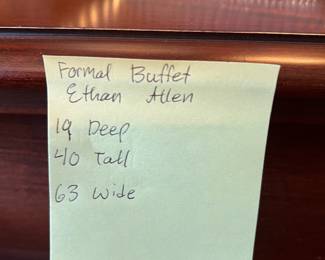 Formal Buffet
Ethan Allen
19 Deep
40 Tall
63 Wide